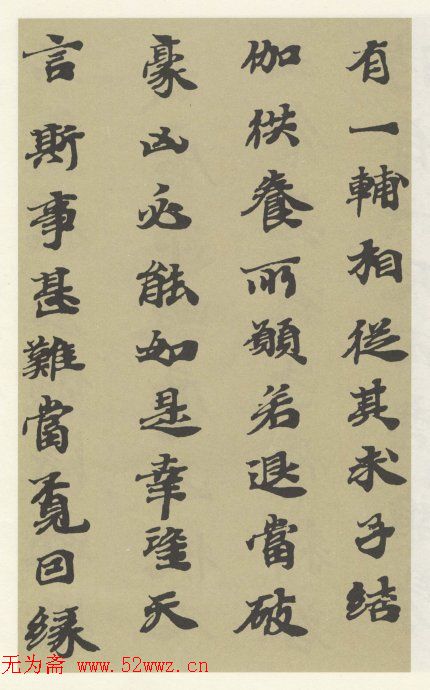 有一輔相從其求子結
伽供養所願若退當破
豪凶必能如是幸望天
言斯事甚難當覓因緣
无为斋 www.52wwz.cn